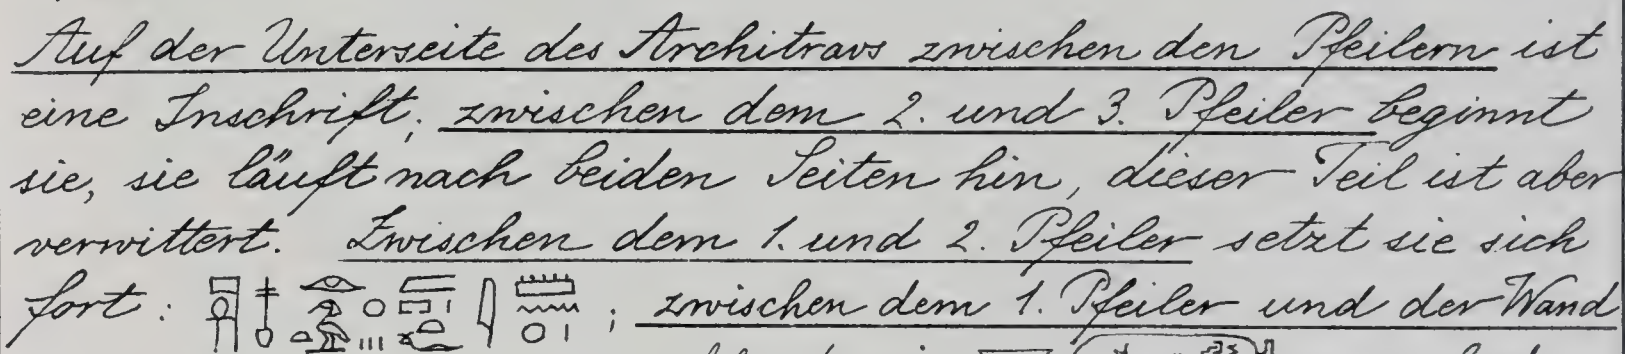 Auf der Unterseite des Architravs zwischen den Pfeilern ist
eine Inschrift; zwischen dem 2. und 3. Pfeiler beginnt
sie, sie läuft nach beiden Seiten hin, dieser Teil ist aber
verwittert. Zwischen dem 1. und 2. Pfeiler setzt sie sich
fort: ; zwischen dem 1. Pfeiler und der Wand